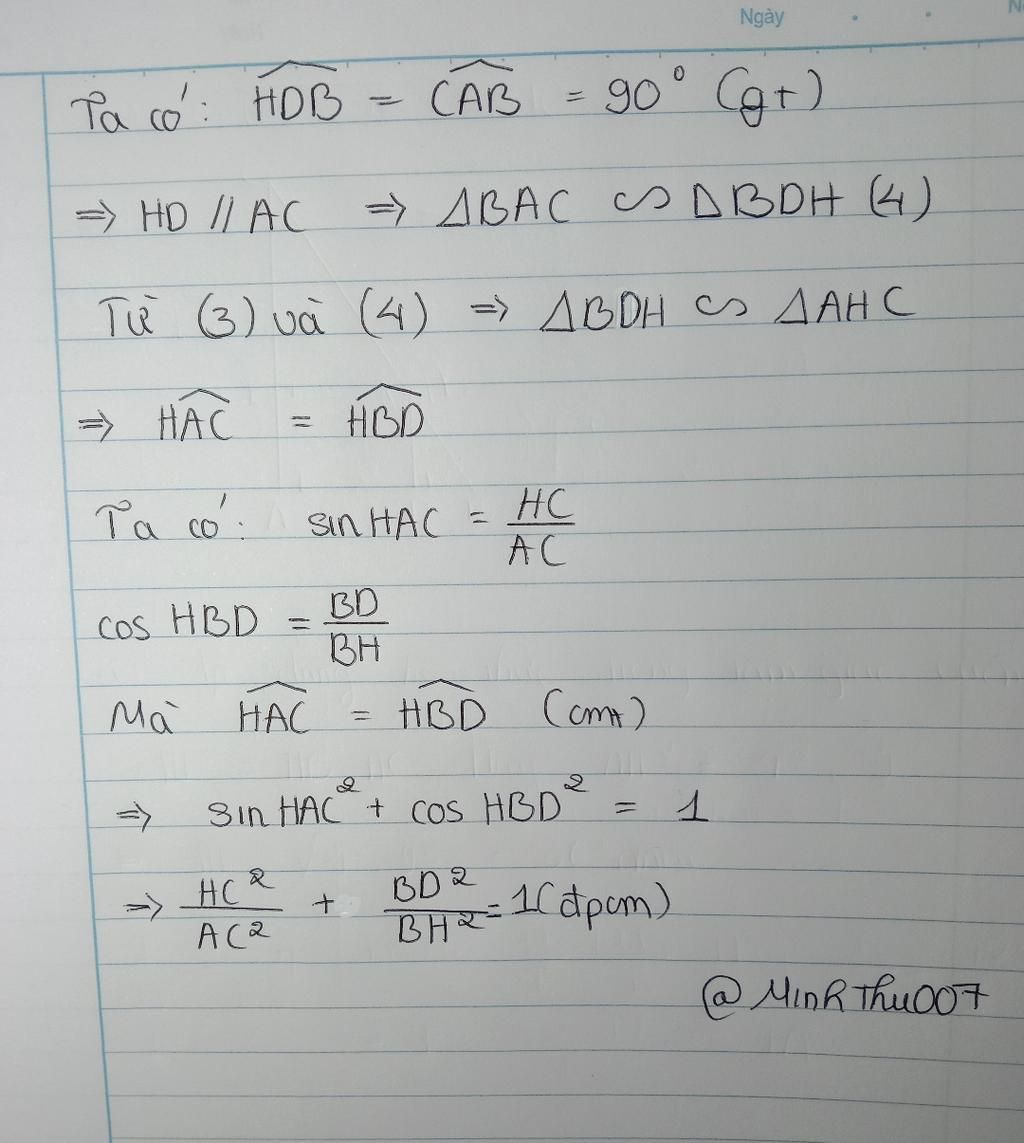 Ngày
Ta có: HDB = CAB = 90° (gt)
⇒ HD // AC ⇒ ΔBAC ∽ ΔBDH (4)
Từ (3) và (4) ⇒ ΔBDH ∽ ΔAHC
⇒ HAC = HBD
Ta có: sin HAC = HC/AC
cos HBD = BD/BH
Mà HAC = HBD (cmt)
⇒ sin HAC² + cos HBD² = 1
⇒ HC²/AC² + BD²/BH² = 1 (đpcm)
@MinhThu007